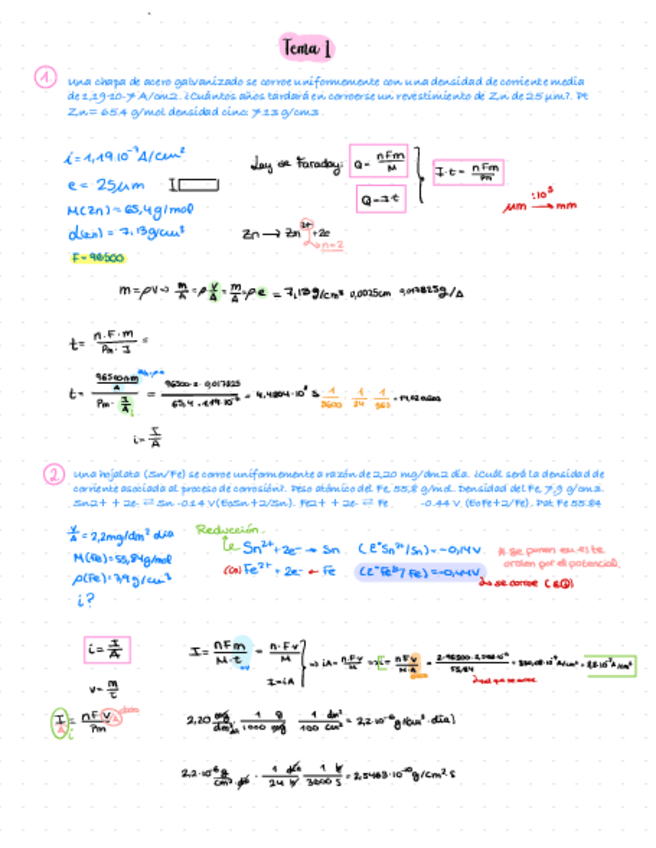 Tema 1
1. Una chapa de acero galvanizado se corroe uniformemente con una densidad de corriente media
de 1,19·10-7 A/cm2. ¿Cuántos años tardará en corroerse un revestimiento de Zn de 25 µm?. Pt
Zn = 65.4 g/mol densidad cinc: 7.13 g/cm3
i = 1,19·10⁻⁷ A/cm²
e = 25µm
M(Zn) = 65,4 g/mol
d(zn) = 7,13g/cm³
F = 96500
Ley de Faraday: Q = nFm/M
Q = I·t
I·t = nFm/Pm
:10³
µm → mm
Zn → Zn²⁺ + 2e
n=2
m = ρV → m/A = ρ V/A = m/A = ρe = 7,13g/cm³ 0,0025cm 0,017825g/A
t = n·F·m / Pm·I =
t = 96500·n·m/A / Pm·I/A = 96500·2·0,017825 / 65,4·1,19·10⁻⁷ = 4,4204·10⁸ s · 1/3600 · 1/24 · 1/365 = 14,02 años
i = I/A
2. Una hojalata (Sn/Fe) se corroe uniformemente a razón de 2,20 mg/dm2 día. ¿Cuál será la densidad de
corriente asociada al proceso de corrosión?. Peso atómico del Fe, 55,8 g/mol. Densidad del Fe, 7,9 g/cm3.
Sn2+ + 2e- ⇄ Sn -0.14 V(EoSn+2/Sn). Fe2+ + 2e- ⇄ Fe -0.44 V (EoFe+2/Fe). Pat Fe 55.84
v/A = 2,2mg/dm² día
M(Fe) = 55,84g/mol
ρ(Fe) = 7,9 g/cm³
i?
Reducción
Sn²⁺ + 2e⁻ → Sn (E°Sn²⁺/Sn) = -0,14V
Fe²⁺ + 2e⁻ ← Fe (E°Fe²⁺/Fe) = -0,44V
* Se ponen en este
orden por el potencial.
se corroe
i = I/A
v = m/t
I/A = nFv/Pm
I = nFm/M·t = n·F·v/M
I = iA
⇒ iA = n·F·v/M ⇒ i = nFv/M·A
2,20 mg/dm² día · 1 g/1000 mg · 1 dm²/100 cm² = 2,2·10⁻⁶ g/(cm²·día)
2,2·10⁻⁶ g/cm²·día · 1 día/24 h · 1 h/3600 s = 2,5463·10⁻¹¹ g/cm² s